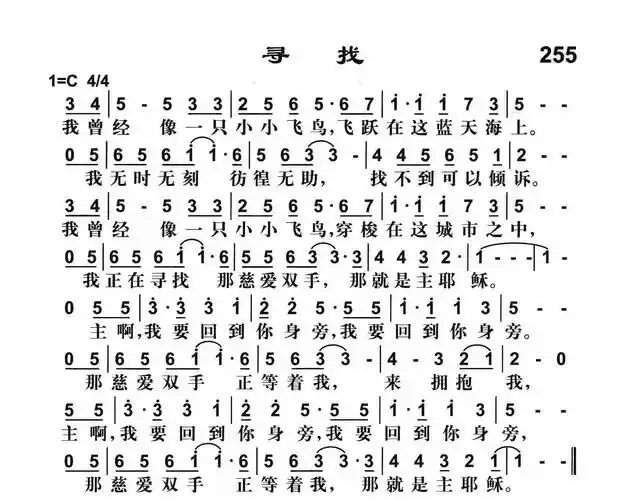 寻 找 255
1=C 4/4
3 4 | 5 - 5 3 3 | 2 5 6 5 · 6 7 | i · i i 7 3 | 5 - -
我曾经 像一只小小飞鸟,飞跃在这蓝天海上。
0 5 | 6 5 6 1 1 · 6 | 5 6 3 3 - | 4 4 5 6 5 1 | 2 - -
我无时无刻 彷徨无助, 找不到可以倾诉。
3 4 | 5 - 5 3 3 | 2 5 6 5 · 6 7 | i · i i 7 3 | 5 - -
我曾经 像一只小小飞鸟,穿梭在这城市之中,
0 5 | 6 5 6 i i · 6 | 5 6 5 3 3 · 3 | 4 4 3 2 · | 1 - - - | 1 -
我正在寻找 那慈爱双手, 那就是主耶 稣。
0 5 5 | 3 · 3 3 i | 2 2 5 · 5 5 | i · i i 3 | 5 - -
主啊,我要回到你身旁,我要回到你身旁。
0 5 | 6 5 6 i i · 6 | 5 6 3 3 - | 4 - 3 2 1 | 2 - 0
那慈爱双手 正等着我, 来 拥抱 我,
5 5 | 3 · 3 3 i | 2 2 5 · 5 5 | i · i i 3 | 5 - -
主啊,我要回到你身旁,我要回到你身旁,
0 5 | 6 5 6 i i · 6 | 5 6 5 3 3 · 3 | 4 4 3 2 1 | 1 - -
那慈爱双手 正等着我, 那就是主耶稣。